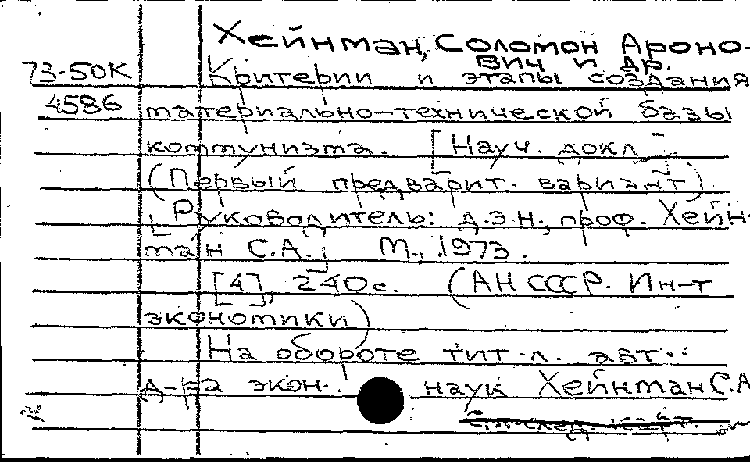 Хейнман, Соломон Ароно-
вич и др.
73-50К Критерии и этапы создания
4586 материально-технической базы
коммунизма. [Науч. докл.]
(Первый предварит. вариант)
[Руководитель: д.э.н., проф. Хейн-
ман С.А.] М., 1973.
[4], 240 с. (АН СССР. Ин-т
экономики)
На обороте тит. л. авт.:
д-ра экон. наук Хейнман С.А.